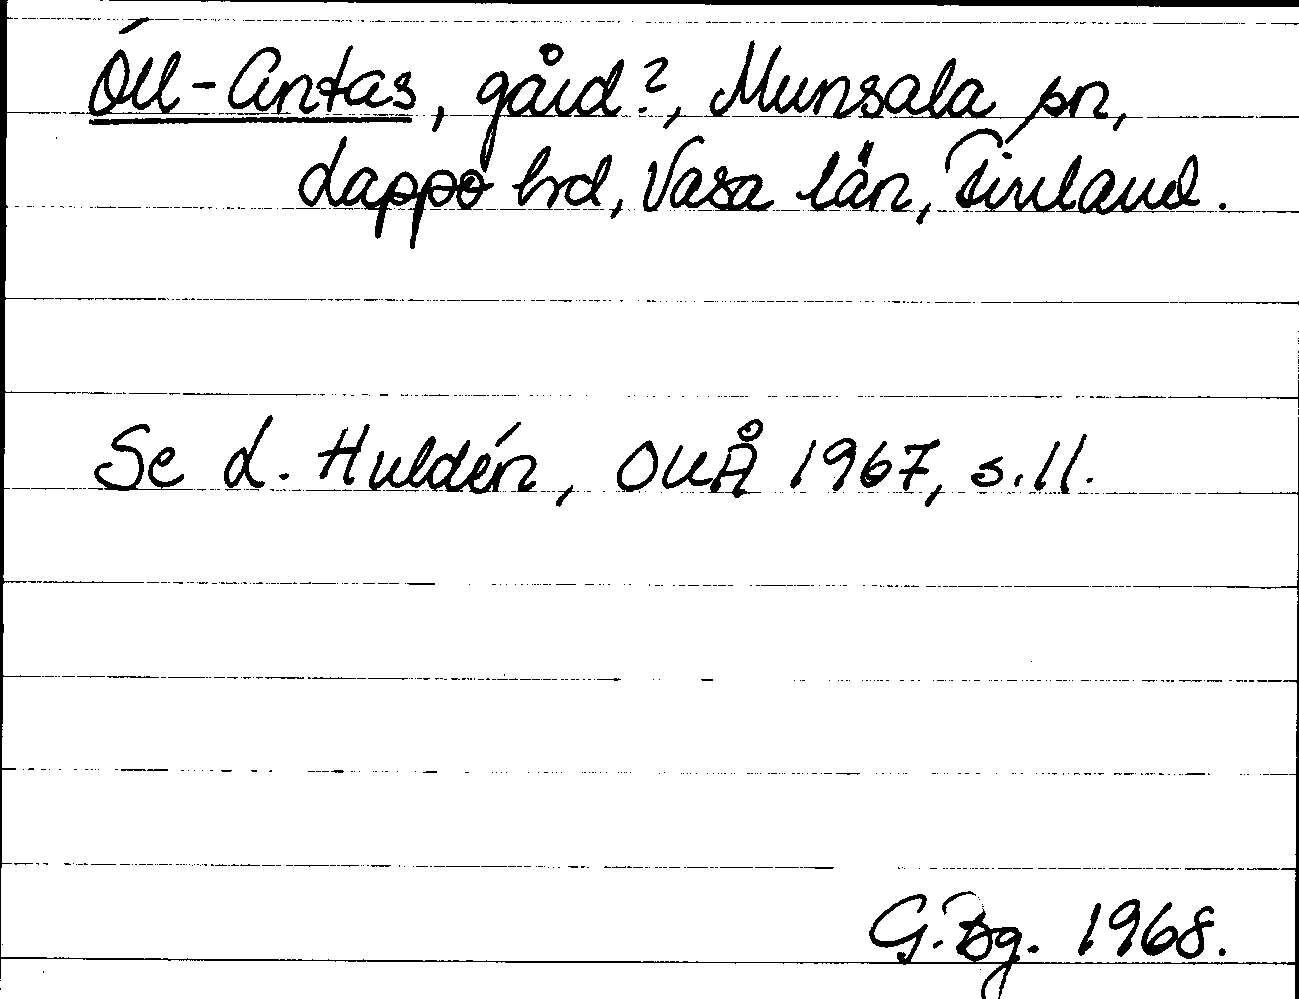 Óll-Antas, gård?, Munsala sn,
Lappo hd, Vasa län, Finland.
Se L. Huldén, OUÅ 1967, s. 11.
G. Bg. 1968.